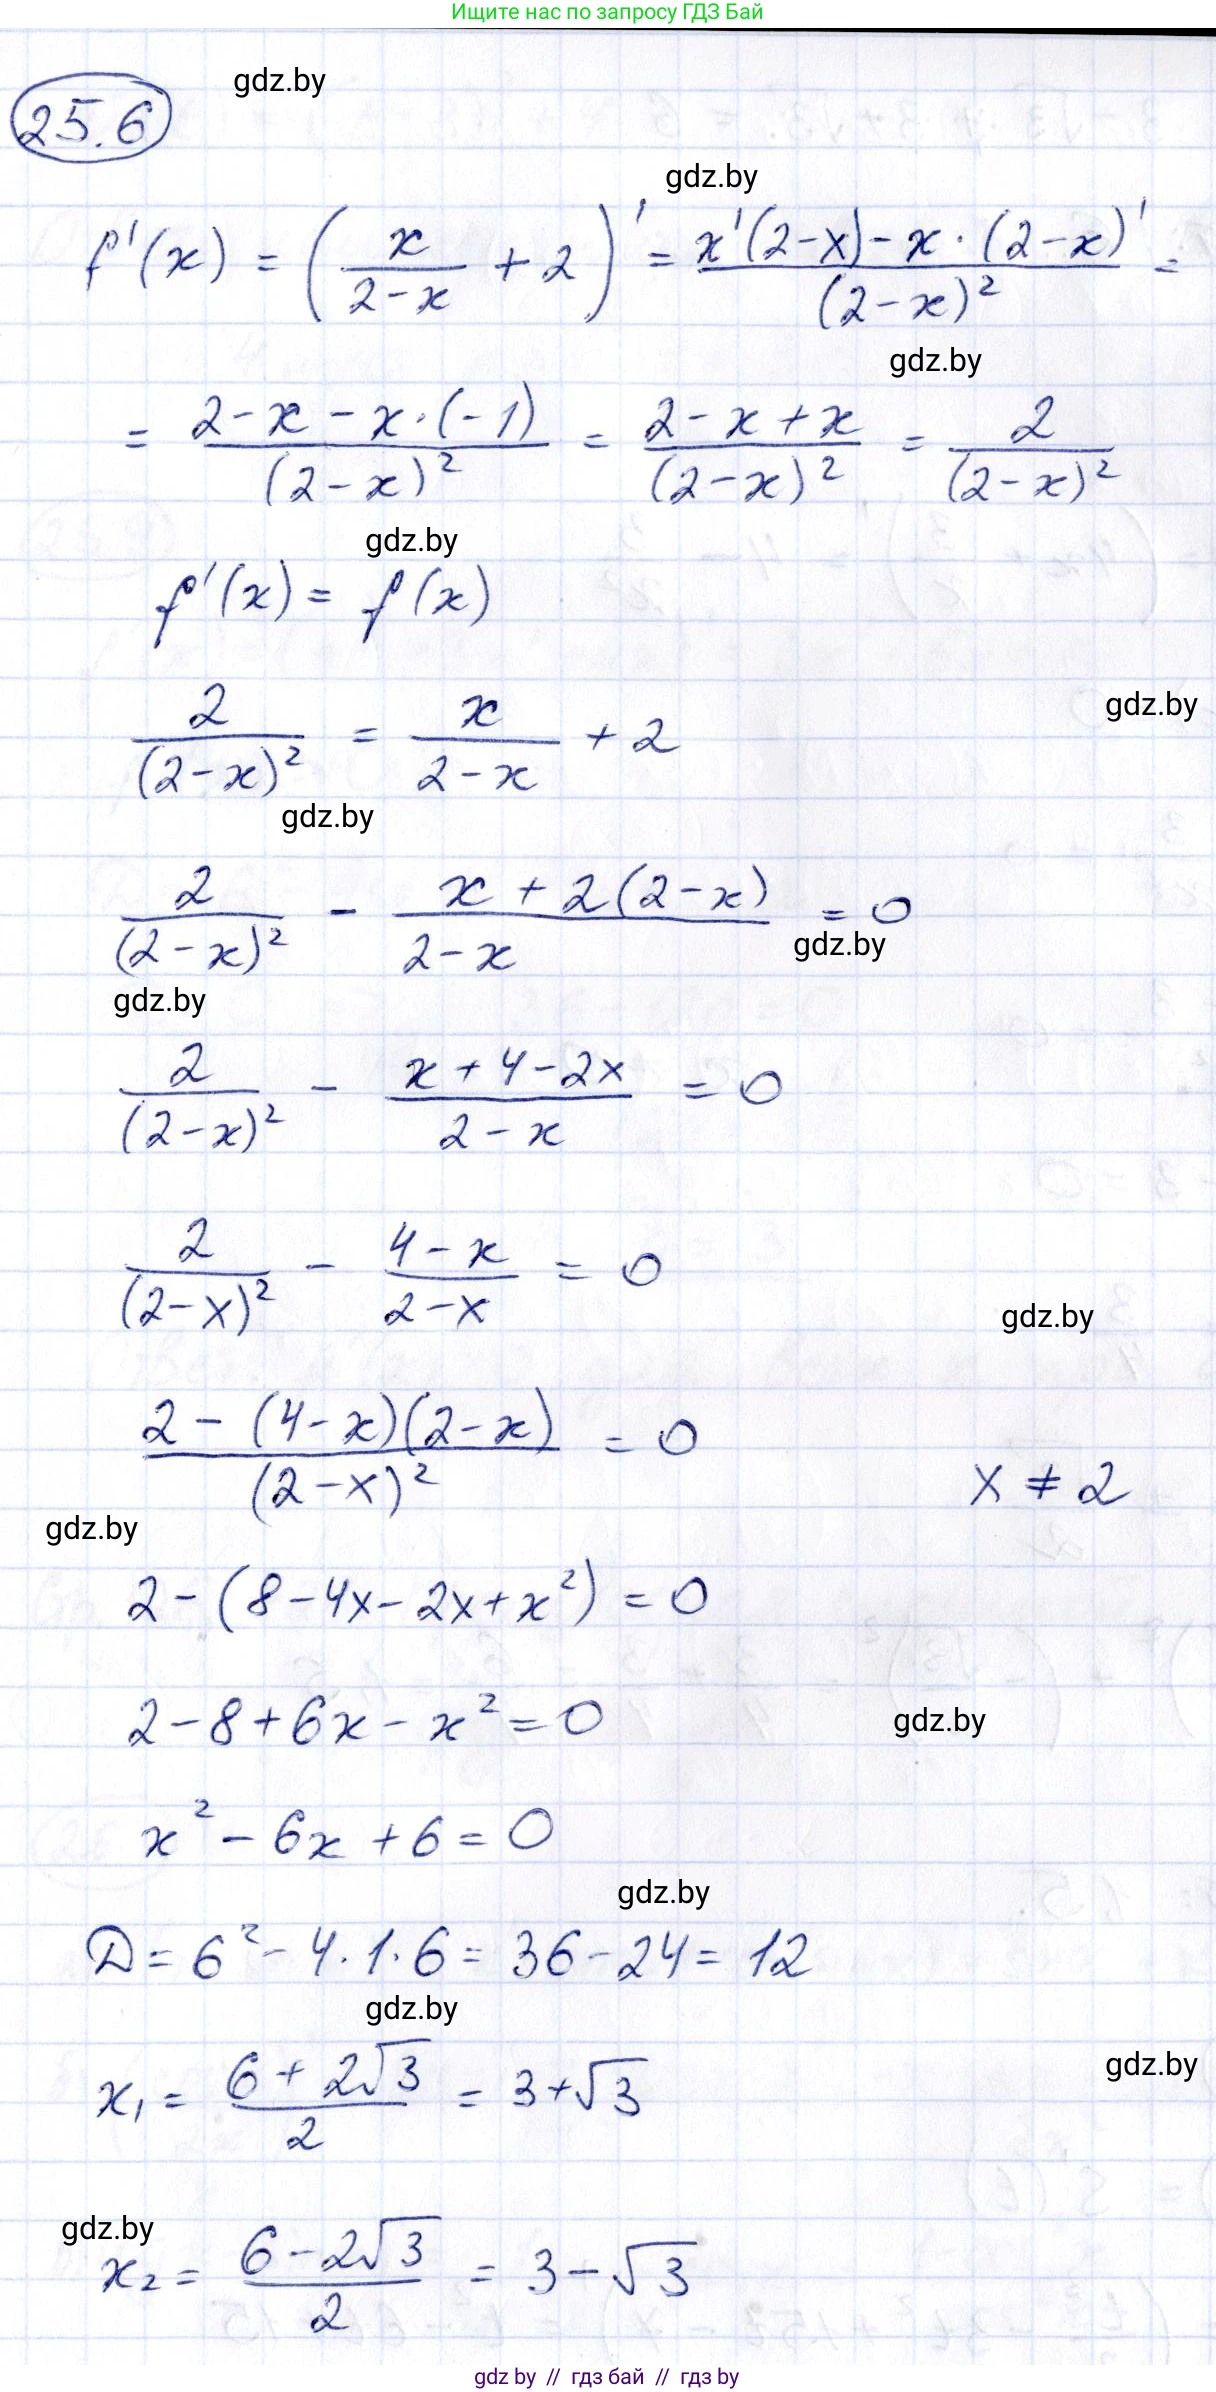 Ищите нас по запросу ГДЗ Бай
gdz.by
25.6
gdz.by
f'(x) = (x/(2-x) + 2)' = (x'(2-x) - x·(2-x)')/(2-x)² =
gdz.by
= (2-x-x·(-1))/(2-x)² = (2-x+x)/(2-x)² = 2/(2-x)²
gdz.by
f'(x) = f(x)
gdz.by
2/(2-x)² = x/(2-x) + 2
gdz.by
2/(2-x)² - (x+2(2-x))/(2-x) = 0
gdz.by
gdz.by
2/(2-x)² - (x+4-2x)/(2-x) = 0
2/(2-x)² - (4-x)/(2-x) = 0
gdz.by
(2-(4-x)(2-x))/(2-x)² = 0
x ≠ 2
gdz.by
2-(8-4x-2x+x²) = 0
2-8+6x-x² = 0
gdz.by
x²-6x+6 = 0
gdz.by
D = 6²-4·1·6 = 36-24 = 12
gdz.by
gdz.by
x₁ = (6+2√3)/2 = 3+√3
gdz.by
x₂ = (6-2√3)/2 = 3-√3
gdz by // гдз бай // гдз by